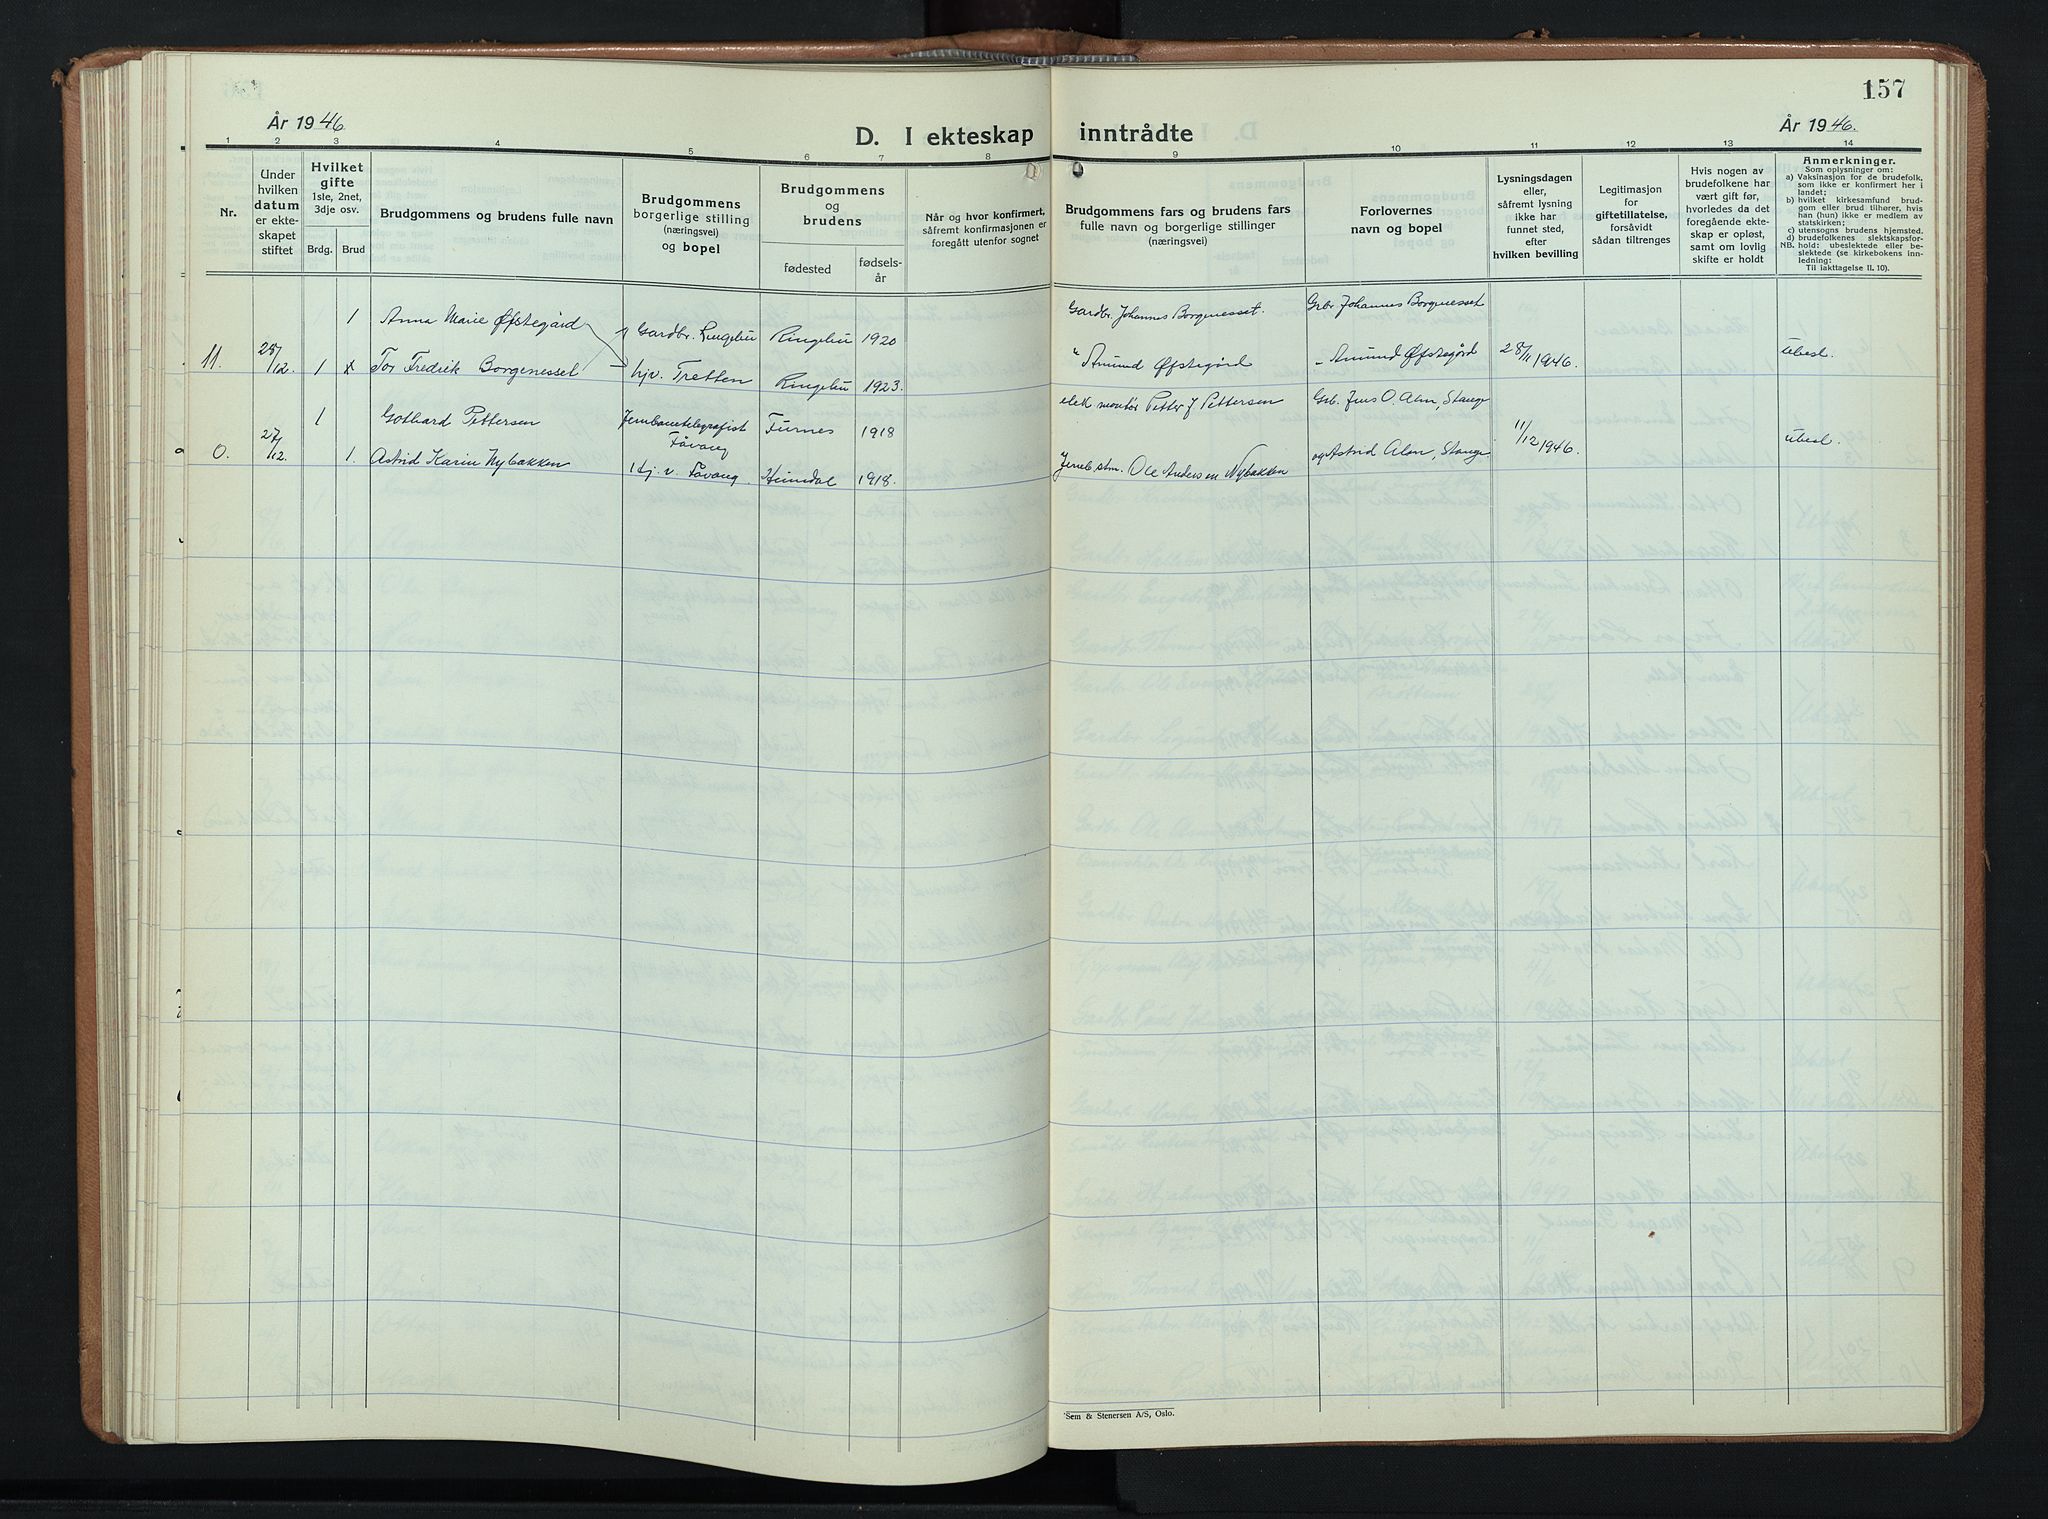 157
År 1946
D. I ekteskap inntrådte
År 1946.
1 2 3 4 5 6 7 8 9 10 11 12 13 14
Nr.
Under
hvilken
datum
er ekte-
skapet
stiftet
Hvilket
gifte
1ste, 2net,
3dje osv.
Brdg. Brud
Brudgommens og brudens fulle navn
Brudgommens
borgerlige stilling
(næringsvei)
og bopel
Brudgommens
og
brudens
fødested
fødsels-
år
Når og hvor konfirmert,
såfremt konfirmasjonen er
foregått utenfor sognet
Brudgommens fars og brudens fars
fulle navn og borgerlige stillinger
(næringsvei)
Forlovernes
navn og bopel
Lysningsdagen
eller,
såfremt lysning
ikke har
funnet sted,
efter
hvilken bevilling
Legitimasjon
for
giftetillatelse,
forsåvidt
sådan tiltrenges
Hvis nogen av
brudefolkene har
vært gift før,
hvorledes da det
foregående ekte-
skap er opløst,
samt om lovlig
skifte er holdt
Anmerkninger.
Som oplysninger om:
a) Vaksinasjon for de brudefolk,
som ikke er konfirmert her i
landet;
b) hvilket kirkesamfund brud-
gom eller brud tilhører, hvis
han (hun) ikke er medlem av
statskirken;
c) utensogns brudens hjemsted.
d) brudefolkenes slektskapsfor-
NB. hold: ubeslektede eller be-
slektede (se kirkebokens inn-
ledning:
Til iakttagelse II. 10).
1 Anna Marie Øfstegård Gardbr. Ringebu Ringebu 1920 Gardbr. Johannes Borgenesset. Grbr Johannes Borgenesset
11. 28/12. 1 x Tor Fredrik Borgenesset hjv. Tretten Ringebu 1923. " Amund Øfstegård - Amund Øfstegård 28/11 1946. Ubesl.
1 Gothard Pettersen Jernbanetelegrafist Fåvang Furnes 1918 elek montør Petter J Pettersen Grb. Jens O. Alm, Stange
0. 27/12. 1. Astrid Karin Nybakken Hj. v. Fåvang. Heimdal 1918. Jernb stm. Ole Andersen Nybakken og Astrid Alm, Stange 11/12 1946. Ubesl.
Sem & Stenersen A/S, Oslo.